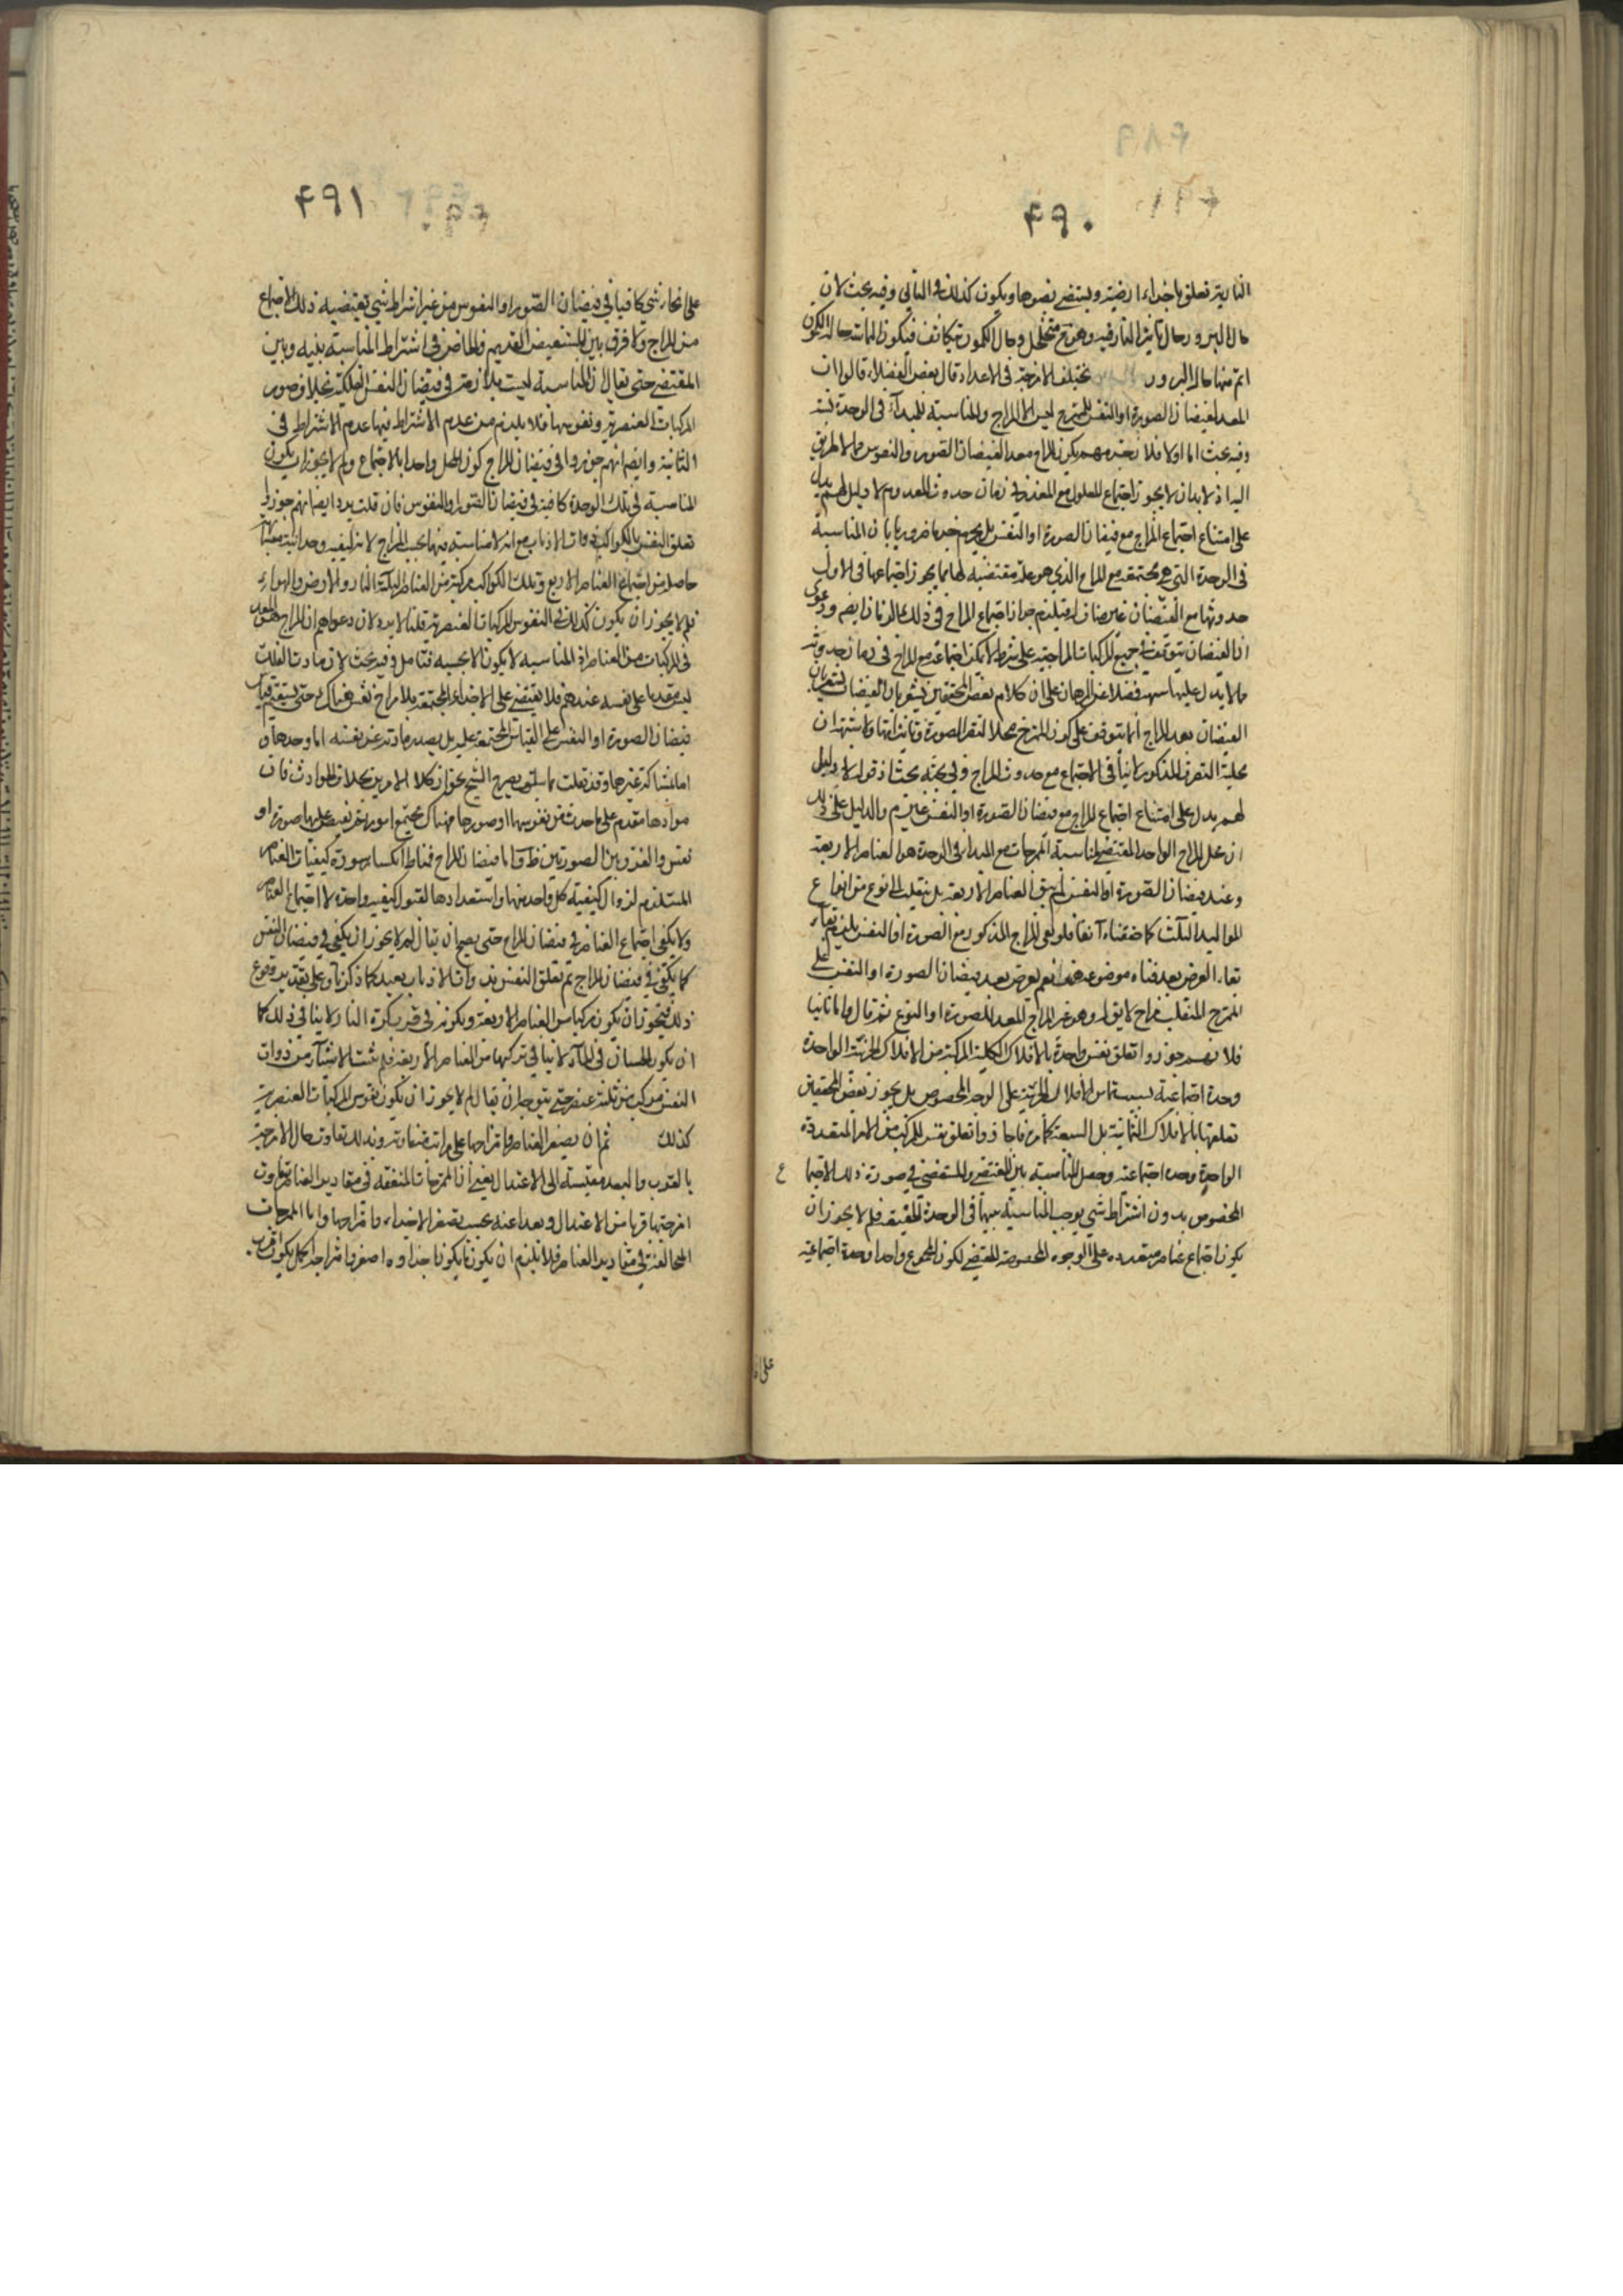 ۴۹۰
النارية تعلق باجزاء ارضية ويستضئ بضوءها ويكون كذلك في التالي وفيه بحث لان
حال البرو رحال تاثير النار فيه وهو متخلخل وحال الكمون تكاثف فيكون المماسة حالة الكون
اتم منها حال البرور تختلف الامزجة في الاعداد قال بعض الفضلاء قالوا ان
المعد لفيضان الصورة او النفس للممتزج ليس الا المزاج والمناسبة للمبدأ في الوحدة
وفيه بحث اما اولا فلا يكون المزاج معدا لفيضان الصور والنفوس
لا يجوز اجتماع المعلول مع المعد في زمان حدوث المعد ولا دليل لهم يدل
على امتناع اجتماع المزاج مع فيضان الصورة او النفس بل بان المناسبة
في الوحدة التي هي مجتمعة مع المزاج الذي هو علة مقتضية لها مما يجوز اجتماعها في الاول
حدوثها مع الفيضان جواز اجتماع المزاج في ذلك الزمان ايضا ودعوى
ان الفيضان يتوقف في جميع المركبات المزاجية على شرط لا يمكن اجتماعه مع المزاج في زمان حدوثه
مما لا يدل عليها شبهة فضلا عن البرهان على ان كلام بعض المحققين يشعر بان الفيضان
الفيضان بعد المزاج انما يتوقف على كون الممتزج محلا
محلية التصرف المذكور لا ينافي الاجتماع مع حدوث المزاج وفي بحثه بحث اذ قوله لا دليل
لهم يدل على امتناع اجتماع المزاج مع فيضان الصورة او النفس غير تم والدليل على ذلك
ان محل المزاج الواحد المقتضي لمناسبة الممزجات مع المبدأ في الوحدة هو العناصر الاربعة
وعند فيضان الصورة او النفس لم يبق العناصر الاربعة بل ينقلب الى نوع من انواع
المواليد الثلث كما حققناه آنفا فلو بقي المزاج المذكور مع الصورة او النفس يلزم بقاء
بقاء العرض بعد فناء موضوعه هف نعم يعرض بعد فيضان الصورة او النفس على
الممتزج المنقلب مزاج لايق له وهو غير المزاج المعد للصورة او النوع ثم قال واما ثانيا
فلانهم جوزوا تعلق نفس واحدة بالافلاك الكلية المركبة من الافلاك الجزئية الواحدة
وحدة اجتماعية بسبب تماس الافلاك الجزئية على الوجه المخصوص بل يجوز بعض المحققين
تعلقها بالافلاك الثمانية بل السبعة تعلق نفس المركب من الامور المتعددة
الواحدة وحدة اجتماعية وحصل المناسبة بين المقتضي والمستفيض في صورة ذلك الاجتماع
المخصوص بدون اشتراط شئ يوجب المناسبة بينها في الوحدة الحقيقة فلم لا يجوز ان
يكون اجتماع عناصر متعددة على الوجوه المخصوصة المقتضي لكون المجموع واحدا وحدة اجتماعية
۴۹۱
على انحاء شتى كافيا في فيضان الصور او النفوس من غير اشتراط شئ يقتضيه ذلك الاجتماع
من المزاج ولا فرق بين المستفيض القديم والحاضر في اشتراط المناسبة بينه وبين
المقتضي حتى يقال ان المناسبة ليست بلازمة في فيضان النفس الفلكية بخلاف صور
المركبات العنصرية ونفوسها فلا يلزم من عدم الاشتراط فيها عدم الاشتراط في
الثانية وايضا انهم جوزوا في فيضان المزاج كون المحل واحدا بالاجتماع ولم لا يجوز ان يكون
المناسبة في تلك الوحدة كافية في فيضان الصور والنفوس فان قلت يرد ايضا انهم جوزوا
تعلق النفس بالكواكب ذوات الاذناب مع انه لا مناسبة فيها بحسب المزاج لانه كيفية وحدانية
حاصلة من اجتماع العناصر الاربع وتلك الكواكب مركبة من العناصر الثلثة النار والارض والهواء
فلم لا يجوز ان يكون كذلك في النفوس للمركبات العنصرية قلنا لا يرد لان دعواهم ان المزاج هو المعد
في المركبات من العناصر اذ المناسبة لا يكون الا بحسبه فتامل وفيه بحث لان مادة الفلك
ليس مقدما على نفسه عندهم فلا يقتضي على الاجزاء المجتمعة بلا مزاج نفس هناك حتى يستقيم قياس
فيضان الصورة او النفس على القياس المجتمعة عليه بل يصدر مادته عن نفسه اما وحدها او
اما بمشاركة غيرها وقد نقلت ما سبق بصريح الشيخ بجواز كلا الامرين بخلاف الحوادث فان
موادها مقدم على ما حدث من نفوسها او صورها فهناك مجتمع امور ثم يفيض عليها صورة او
نفس والفرق بين الصورتين ظ واما فيضان المزاج فمناط انكسار سورة كيفيات العناصر
المستلزم لزوال كيفية كل واحد منها واستعدادها لقبول كيفية واحدة لا اجتماع العناصر
ولا يكفي اجتماع العناصر في فيضان المزاج حتى يصح ان يقال لم لا يجوز ان يكفي في فيضان النفس
كما يكفي في فيضان المزاج ثم تعلق النفس بذوات الاذناب بعيد كما ذكرنا وعلى تقدير وقوع
ذلك فيجوز ان يكون مركبا من العناصر الاربعة وكونه في قرب كرة النار لا ينافي ذلك كما
ان يكون الحيتان في الماء لا ينافي تركبها من العناصر الاربعة فلم يثبت الاشياء من ذوات
النفس مركب من ثلثة عنصر حتى يتوجه ان يقال لم لا يجوز ان يكون نفوس المركبات العنصرية
كذلك ثم ان يصغر العناصر وامتزاجها على مراتب متفاوتة وبذلك تفاوت حال الامزجة
بالقرب والبعد مقيسة الى الاعتدال يعني ان الممتزجات المتفقة في مقادير العناصر تفاوت
امزجتها قربا من الاعتدال وبعدا عنه بحسب تصغر الاجزاء وامتزاجها واما الممزجات
المخالفة في مقادير العناصر فلا يلزم ان يكون ما يكون اجزاؤه اصغر وامتزاجه اكمل يكون اقرب